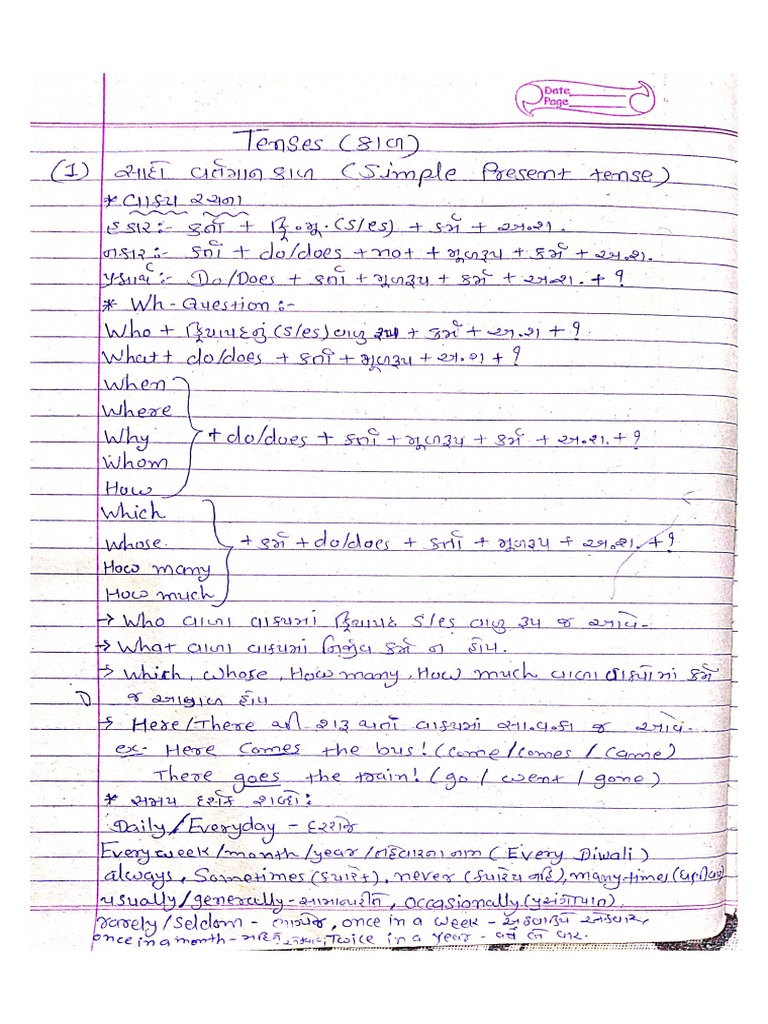 Date
Page
Tenses (કાળ)
(1) સાદો વર્તમાનકાળ (Simple Present tense)
* વાક્ય રચના
હકાર:- કર્તા + ક્રિ.મૂ.(s/es) + કર્મ + અ.શ.
નકાર:- કર્તા + do/does + not + મૂળરૂપ + કર્મ + અ.શ.
પ્રશ્નાર્થ:- Do/Does + કર્તા + મૂળરૂપ + કર્મ + અ.શ. + ?
* Wh-Question:-
Who + ક્રિયાપદનું (s/es) વાળુ રૂપ + કર્મ + અ.શ + ?
What + do/does + કર્તા + મૂળરૂપ + અ.શ + ?
When
Where
Why + do/does + કર્તા + મૂળરૂપ + કર્મ + અ.શ. + ?
Whom
How
Which
Whose. + કર્મ + do/does + કર્તા + મૂળરૂપ + અ.શ. + ?
How many
How much
→ Who વાળા વાક્યમાં ક્રિયાપદ s/es વાળુ રૂપ જ આવે.
→ What વાળા વાક્યમાં નિર્જીવ કર્મ ન હોય.
→ Which, Whose, How many, How much વાળા વાક્યોમાં કર્મ
જ આગળ હોય
→ Here/There થી શરૂ થતાં વાક્યમાં સા.વ.કા જ આવે.
ex- Here Comes the bus! (come/comes / came)
There goes the train! (go / went / gone)
* સમય દર્શક શબ્દો:
Daily/Everyday - દરરોજ
Every week/month/year/તહેવારના નામ (Every Diwali)
always, Sometimes (ક્યારેક), never (ક્યારેય નહિ), many times (ઘણીવાર)
usually/generally - સામાન્યરીતે, occasionally (પ્રસંગોપાત),
rarely/Seldom - ભાગ્યેજ, once in a week - અઠવાડિયે એકવાર,
once in a month - મહિને એકવાર, Twice in a Year - વર્ષે બે વાર.